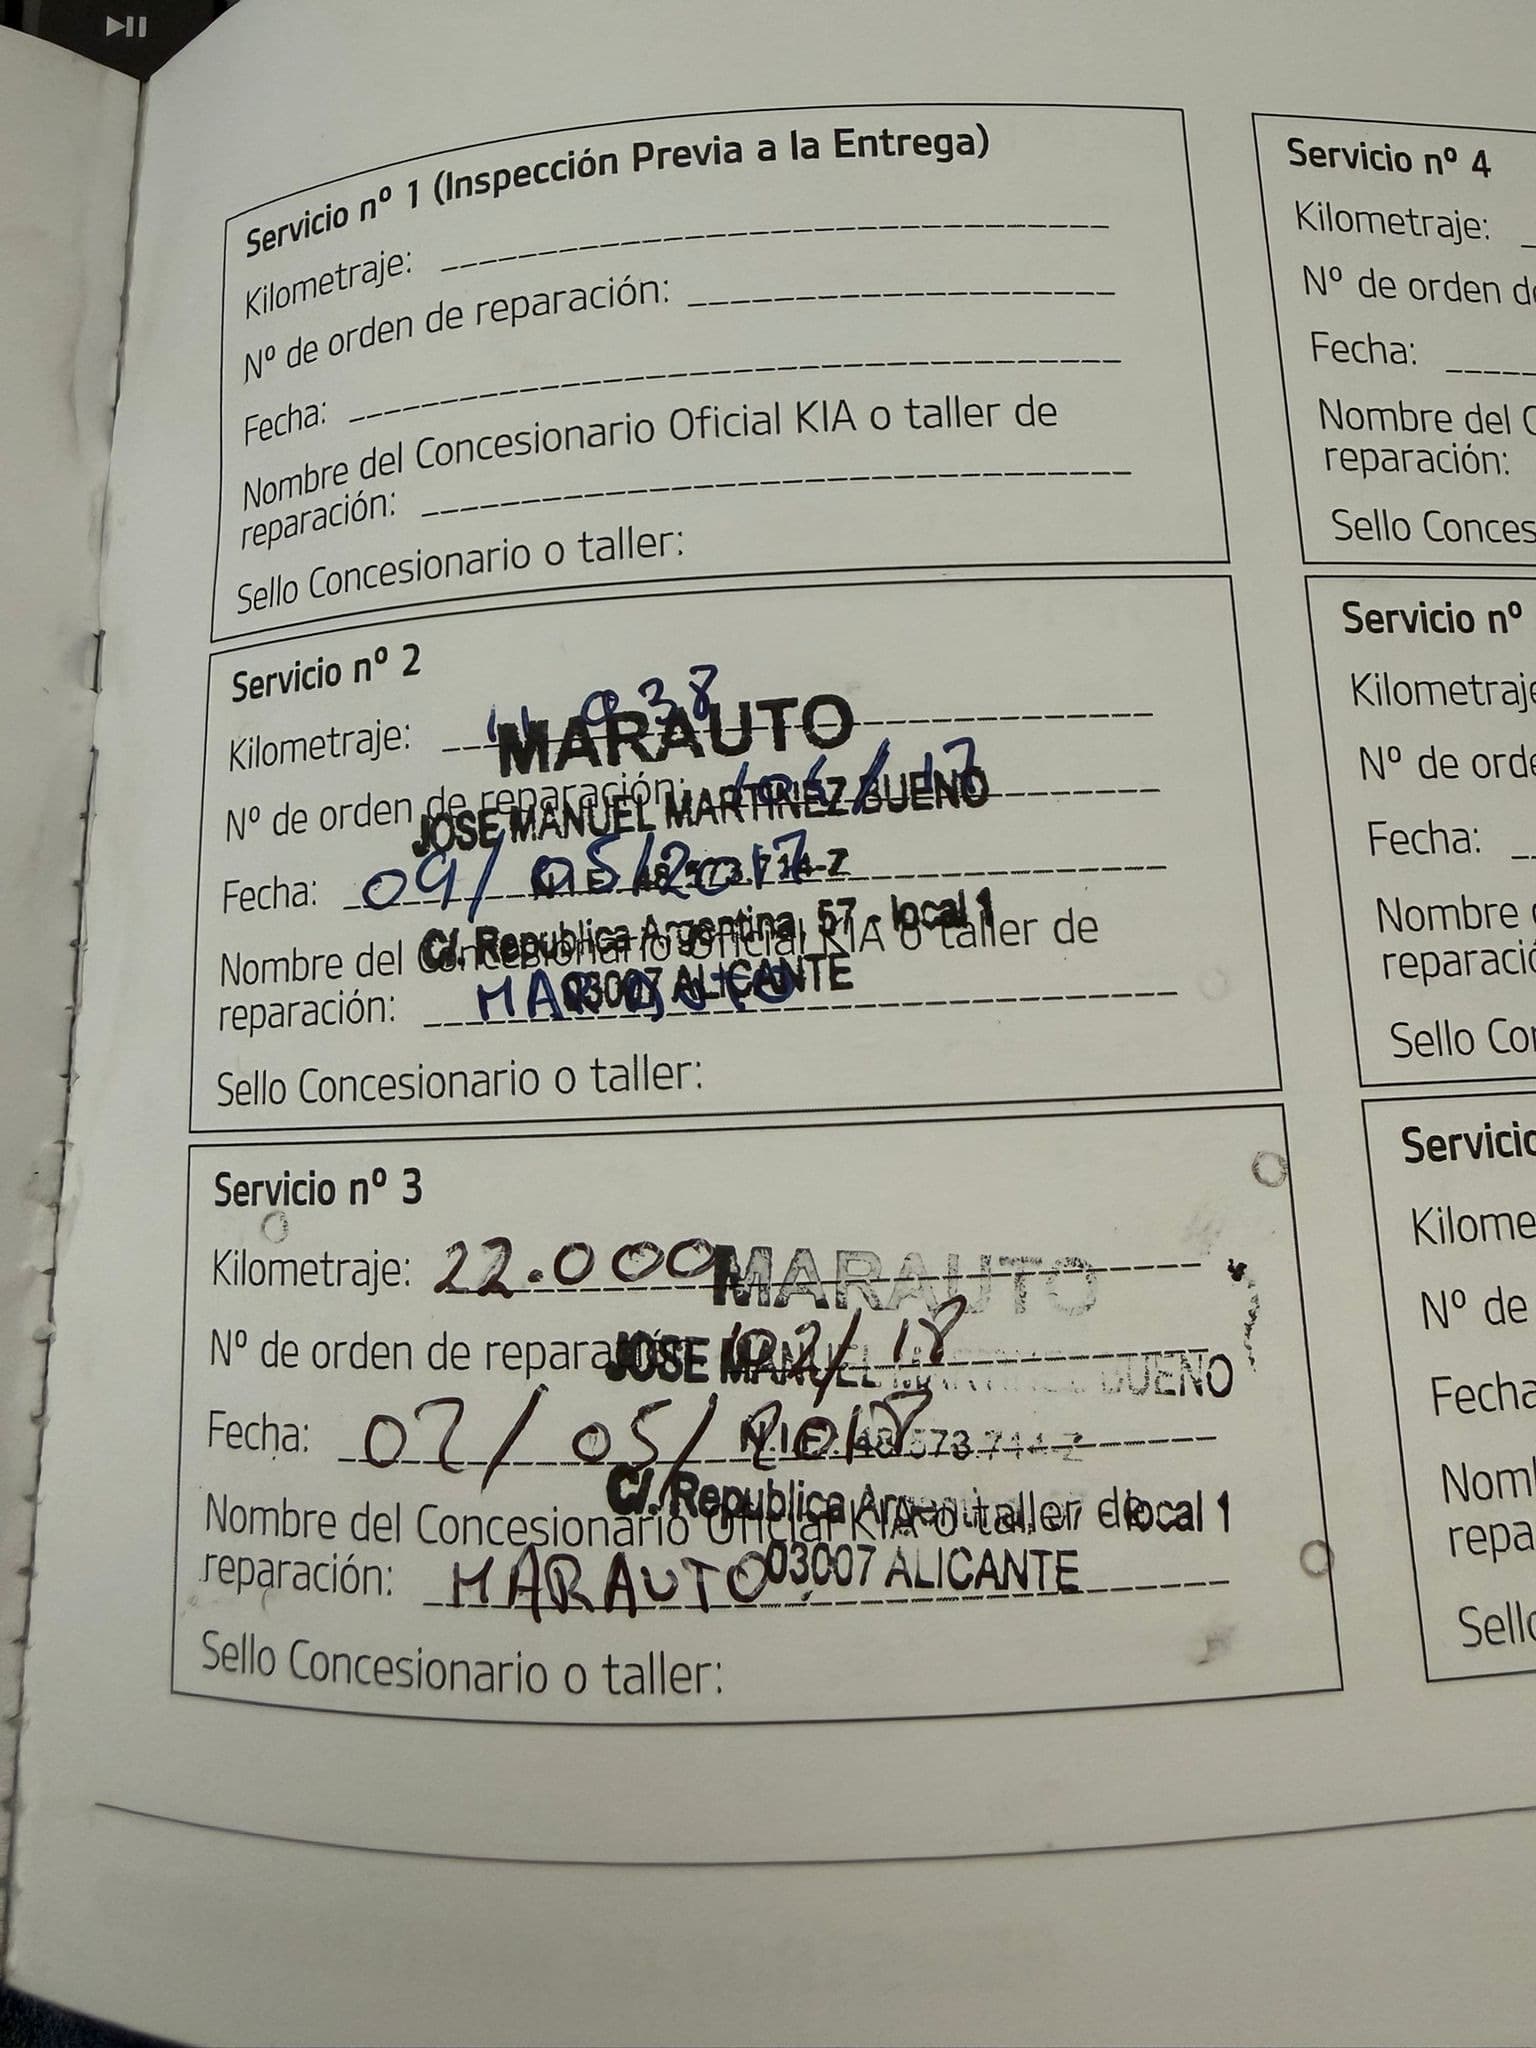 Servicio nº 1 (Inspección Previa a la Entrega)
Kilometraje:
Nº de orden de reparación:
Fecha:
Nombre del Concesionario Oficial KIA o taller de
reparación:
Sello Concesionario o taller:
Servicio nº 2
Kilometraje: 11.038
MARAUTO
Nº de orden de reparación:
JOSE MANUEL MARTINEZ BUENO
Fecha: 09/05/2017
N.I.F. 48.573.744-Z
C/. Republica Argentina, 57 - local 1
Nombre del Concesionario Oficial KIA o taller de
03007 ALICANTE
reparación: MARAUTO
Sello Concesionario o taller:
Servicio nº 3
Kilometraje: 22.000
MARAUTO
Nº de orden de reparación: 102/18
JOSE MANUEL MARTINEZ BUENO
Fecha: 02/05/2018
N.I.F. 48.573.744-Z
C/. Republica Argentina, 57 - local 1
Nombre del Concesionario Oficial KIA o taller de
03007 ALICANTE
reparación: MARAUTO
Sello Concesionario o taller:
Servicio nº 4
Kilometraje:
Nº de orden de
Fecha:
Nombre del C
reparación:
Sello Conces
Servicio nº
Kilometraje
Nº de orde
Fecha:
Nombre
reparació
Sello Co
Servicio
Kilome
Nº de
Fecha
Nom
repa
Sello